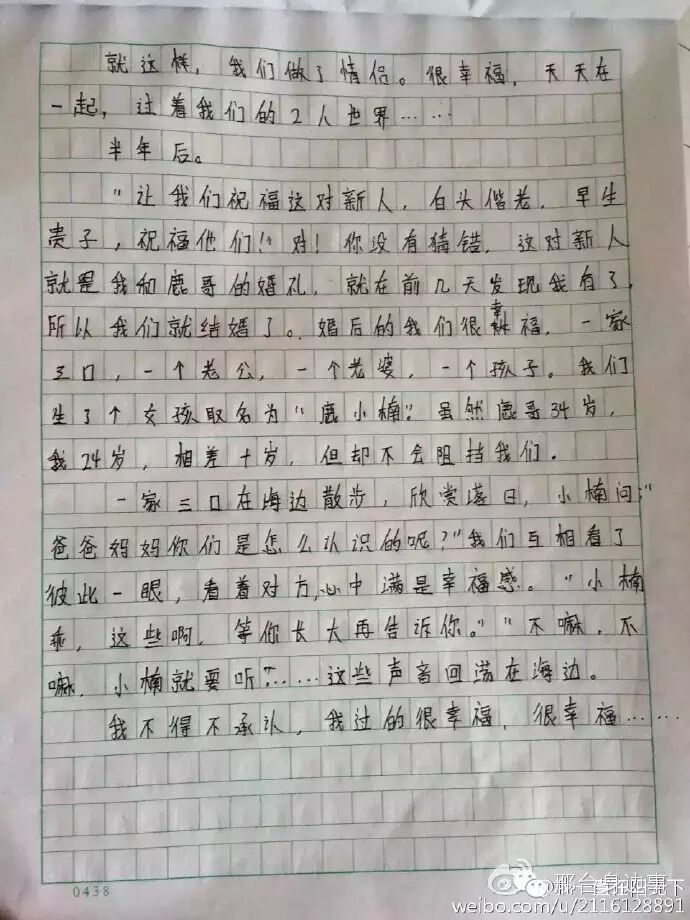 就这样，我们做了情侣。很幸福，天天在
一起，过着我们的2人世界……
半年后。
“让我们祝福这对新人，白头偕老，早生
贵子，祝福他们！”对！你没有猜错，这对新人
就是我和鹿哥的婚礼，就在前几天发现我有了，
所以我们就结婚了。婚后的我们很幸福，一家
三口，一个老公，一个老婆，一个孩子。我们
生了个女孩取名为“鹿小楠”。虽然鹿哥34岁，
我24岁，相差十岁，但却不会阻挡我们。
一家三口在海边散步，欣赏落日，小楠问：“
爸爸妈妈你们是怎么认识的呢？”我们互相看了
彼此一眼，看着对方，心中满是幸福感。“小楠
乖，这些啊，等你长大再告诉你。”“不嘛，不
嘛，小楠就要听”……这些声音回荡在海边。
我不得不承认，我过的很幸福，很幸福……
0438
邢台身边事
weibo.com/u/2116128891